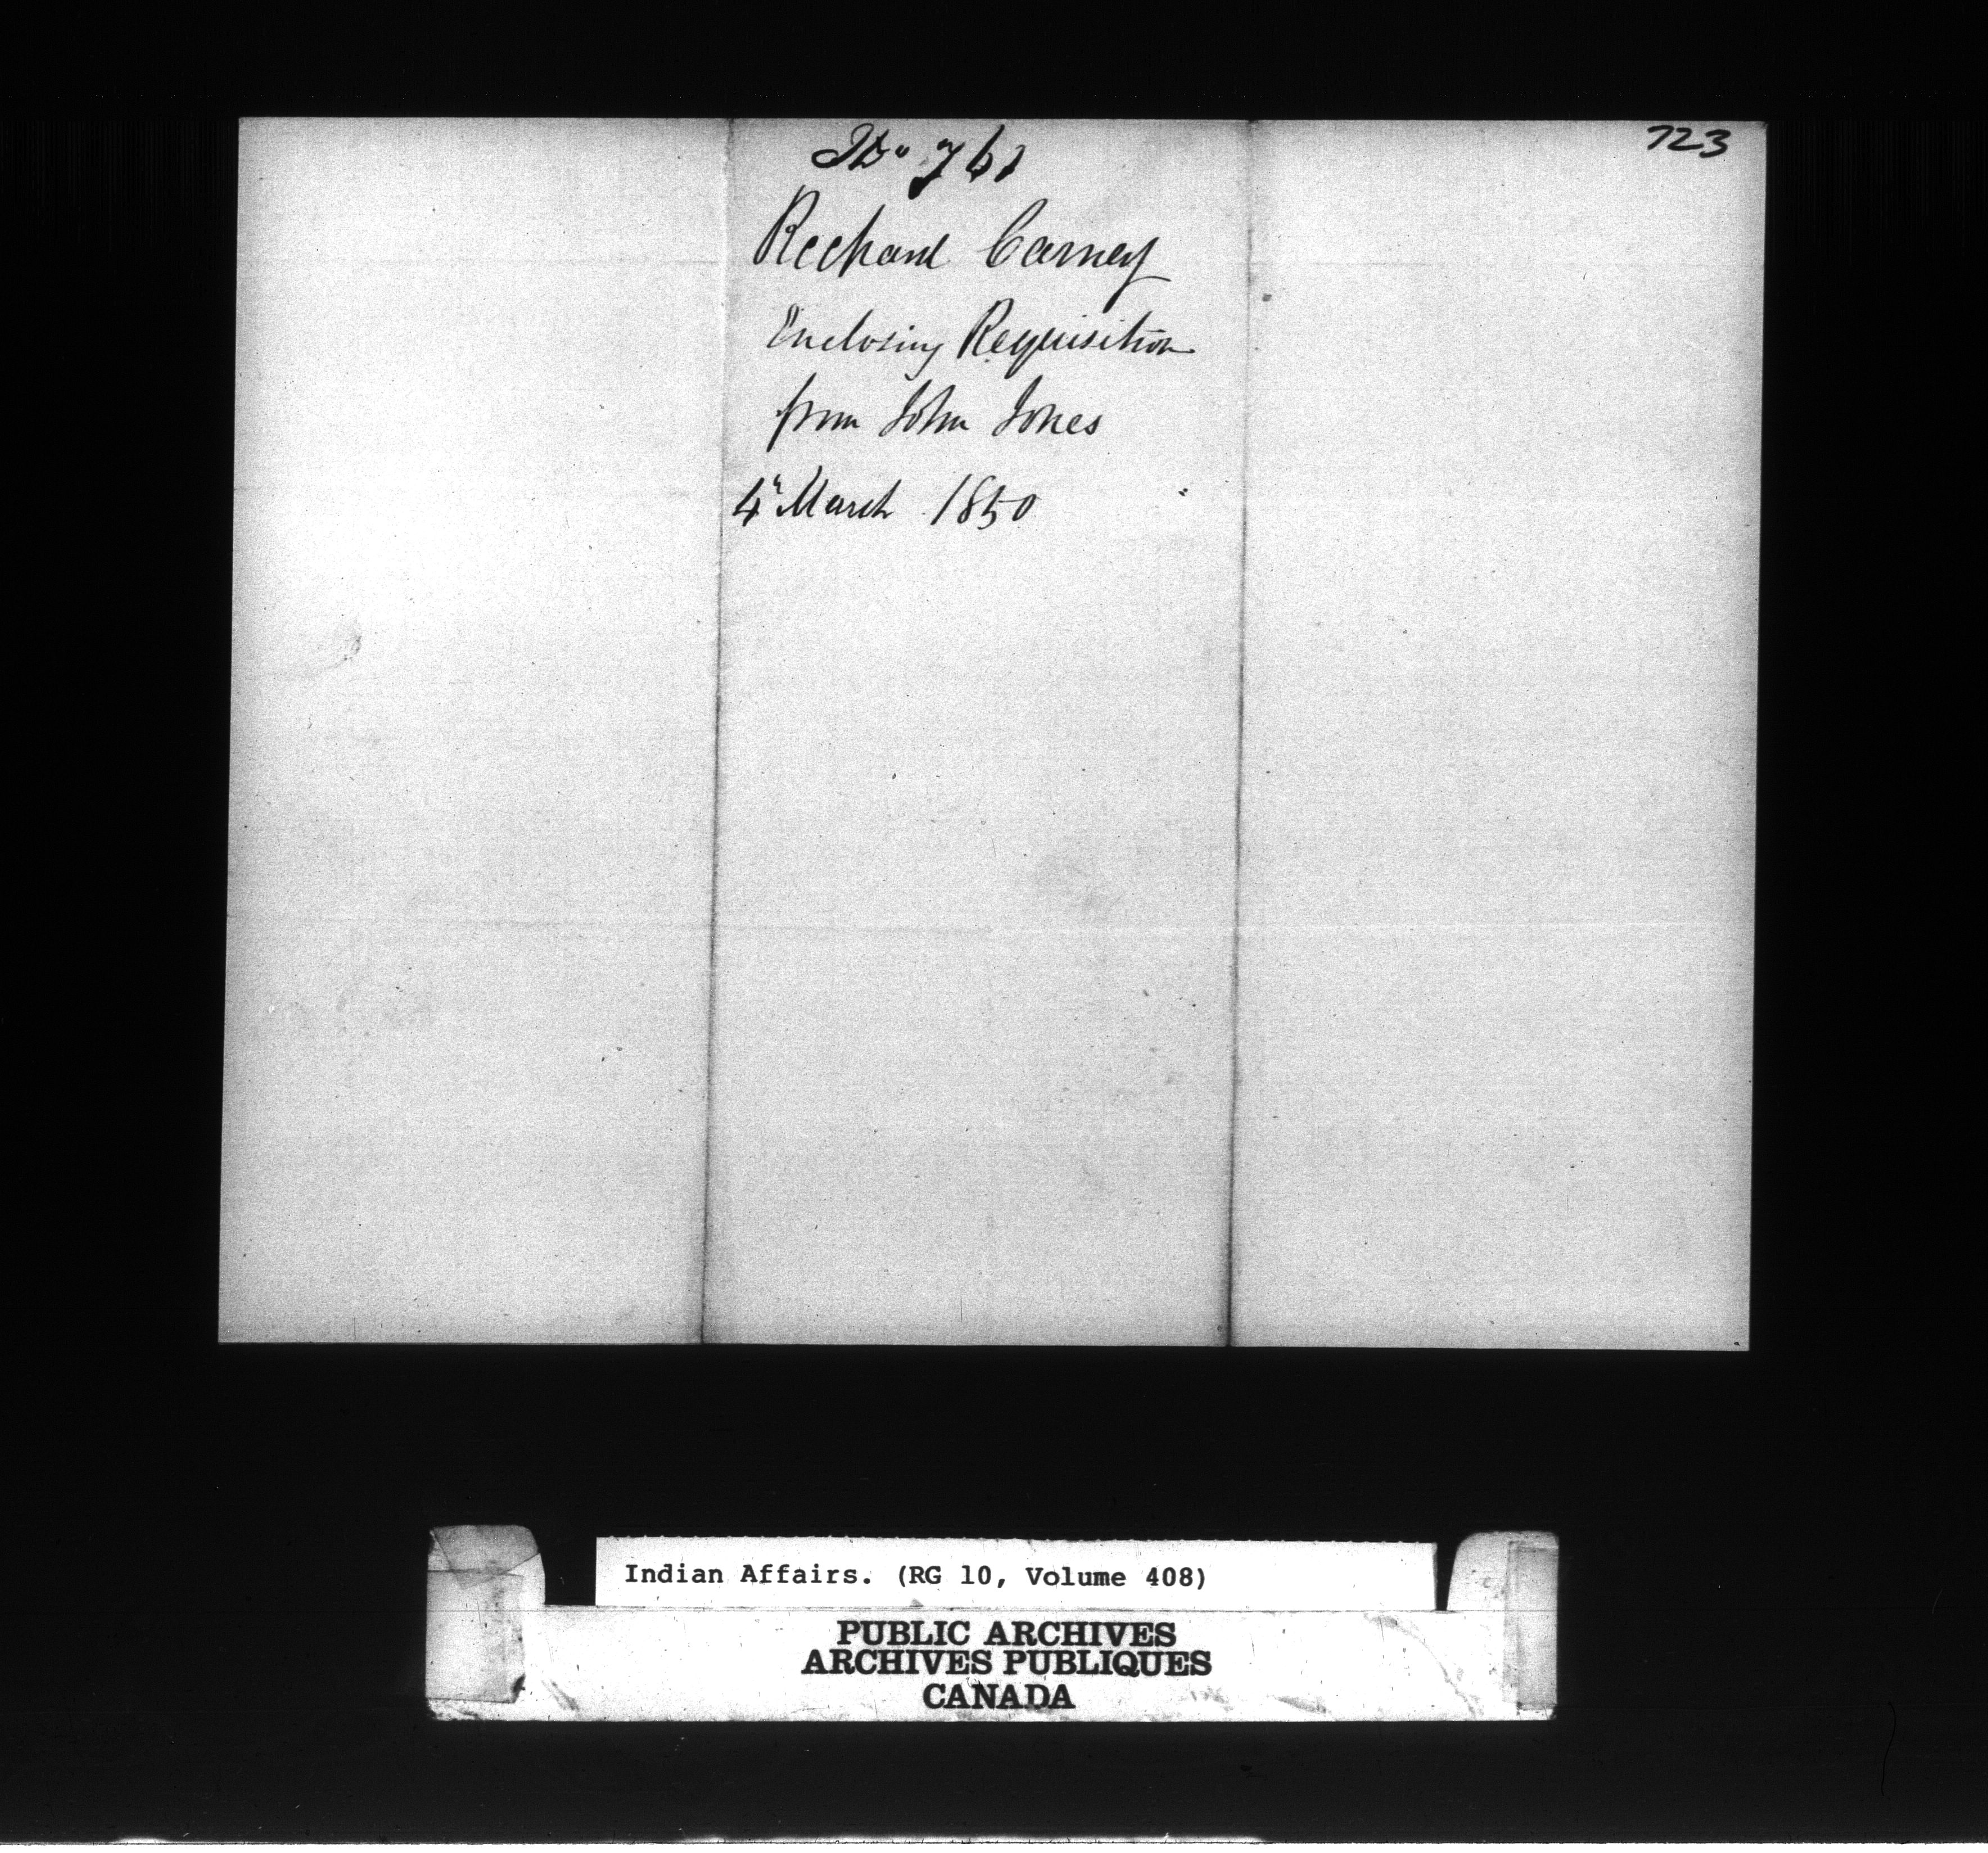 723
No 761
Richard Carney
Enclosing Requisition
from John Jones
4" March 1850
Indian Affairs. (RG 10, Volume 408)
PUBLIC ARCHIVES
ARCHIVES PUBLIQUES
CANADA